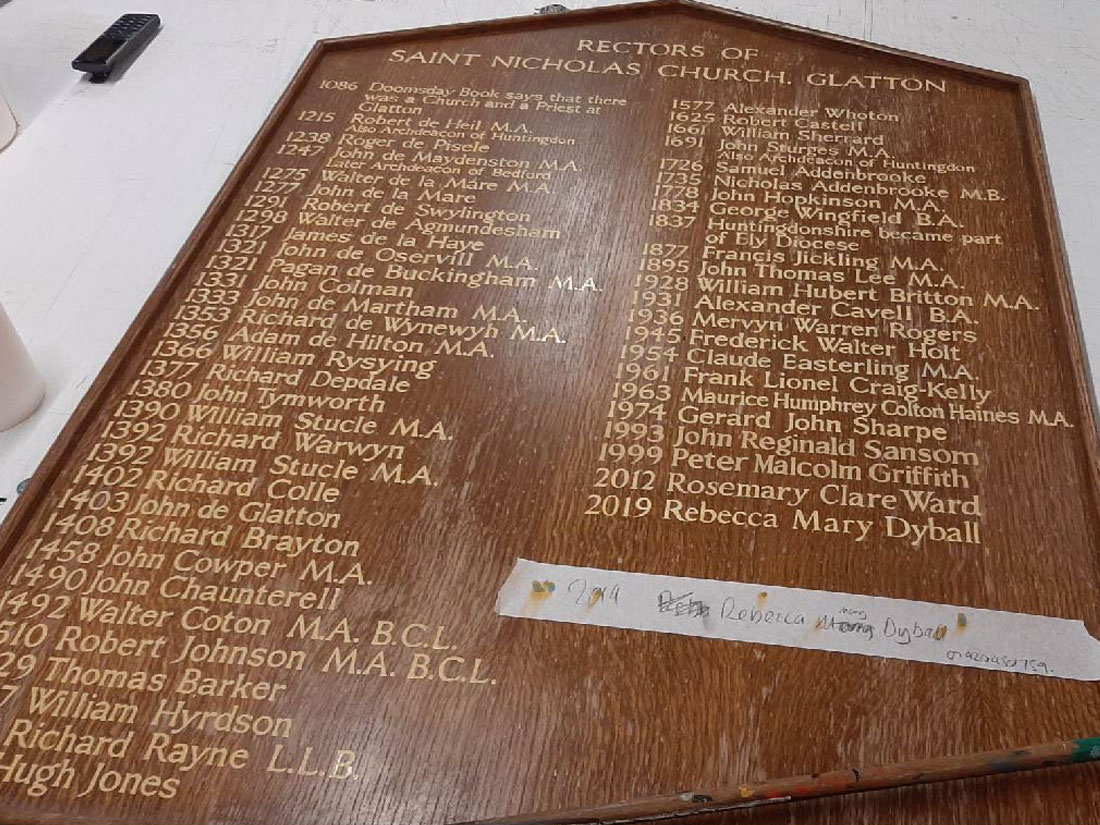 RECTORS OF
SAINT NICHOLAS CHURCH, GLATTON
1086 Doomsday Book says that there
was a Church and a Priest at
Glatton
1215 Robert de Heil M.A.
Also Archdeacon of Huntingdon
1238 Roger de Pisele
1247 John de Maydenston M.A.
Later Archdeacon of Bedford
1275 Walter de la Mare M.A.
1277 John de la Mare
1291 Robert de Swylington
1298 Walter de Agmundesham
1317 James de la Haye
1321 John de Oservill M.A.
1321 Pagan de Buckingham M.A.
1331 John Colman
1333 John de Martham M.A.
1353 Richard de Wynewyh M.A.
1356 Adam de Hilton M.A.
1366 William Rysying
1377 Richard Depdale
1380 John Tymworth
1390 William Stucle M.A.
1392 Richard Warwyn
1392 William Stucle M.A.
1402 Richard Colle
1403 John de Glatton
1408 Richard Brayton
1458 John Cowper M.A.
1490 John Chaunterell
1492 Walter Coton M.A. B.C.L.
510 Robert Johnson M.A. B.C.L.
29 Thomas Barker
7 William Hyrdson
Richard Rayne L.L.B.
Hugh Jones
1577 Alexander Whoton
1625 Robert Castell
1661 William Sherrard
1691 John Sturges M.A.
Also Archdeacon of Huntingdon
1726 Samuel Addenbrooke
1735 Nicholas Addenbrooke M.B.
1778 John Hopkinson M.A.
1834 George Wingfield B.A.
1837 Huntingdonshire became part
of Ely Diocese
1877 Francis Jickling M.A.
1895 John Thomas Lee M.A.
1928 William Hubert Britton M.A.
1931 Alexander Cavell B.A.
1936 Mervyn Warren Rogers
1945 Frederick Walter Holt
1954 Claude Easterling M.A.
1961 Frank Lionel Craig-Kelly
1963 Maurice Humphrey Colton Haines M.A.
1974 Gerard John Sharpe
1993 John Reginald Sansom
1999 Peter Malcolm Griffith
2012 Rosemary Clare Ward
2019 Rebecca Mary Dyball
2019 Rebecca Mary Dyball